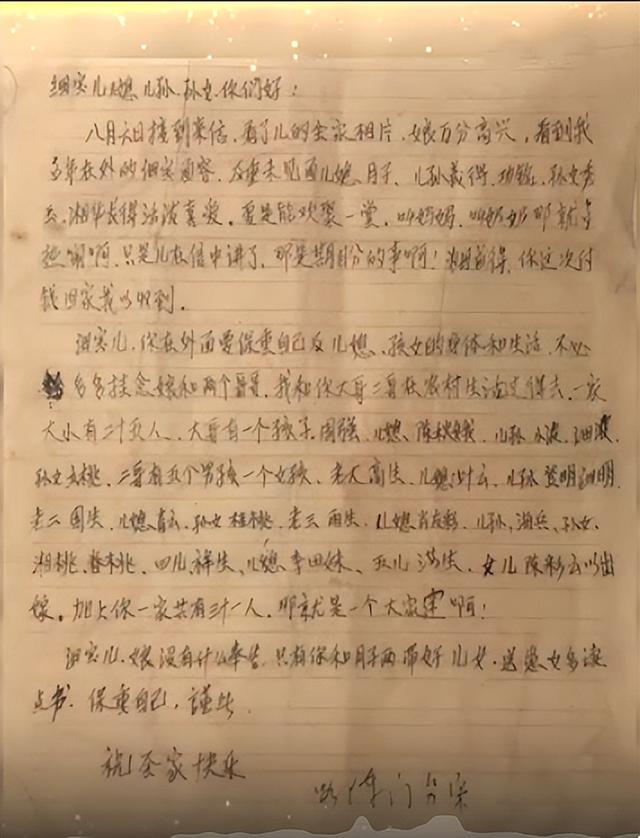 细宝儿、儿媳、儿孙、孙女、你们好：
八月六日接到来信、看了儿的全家相片、娘万分高兴，看到我
多年在外的细宝面容、及重未见面儿媳、月子、儿孙义得、孙女秀
兵、湘华长得活泼喜爱。要是能欢聚一堂，叫妈妈、叫奶奶那就多
热闹啊，只是儿在信中讲了、那是其自分的事啊！你这次付
钱回家我以收到。
细宝儿、你在外面要保重自己及儿媳、孩女的身体和生活、不必
多多挂念娘和两个哥哥、我和你大哥二哥在农村生活过得去、一家
大小有二十五人、大哥有一个孩子国强、儿媳、陈秋娥、儿孙小波、细波
孙女、二哥有五个男孩一个女孩、老大高生、儿媳叶云、儿孙
老二国生、儿媳青云、孙女桂桃、老三雨生、儿媳肖友彩、儿孙、海兵、孙女、
湘桃、春桃、四儿祥生、儿媳李田妹、五儿满生、女儿陈彩云以出
嫁。加上你一家共有三十一人、那就是一个大家庭啊！
细宝儿、娘没有什么奉告、只有你和月子两带好儿女、送儿女多读
点书、保重自己，谨此
祝全家快乐